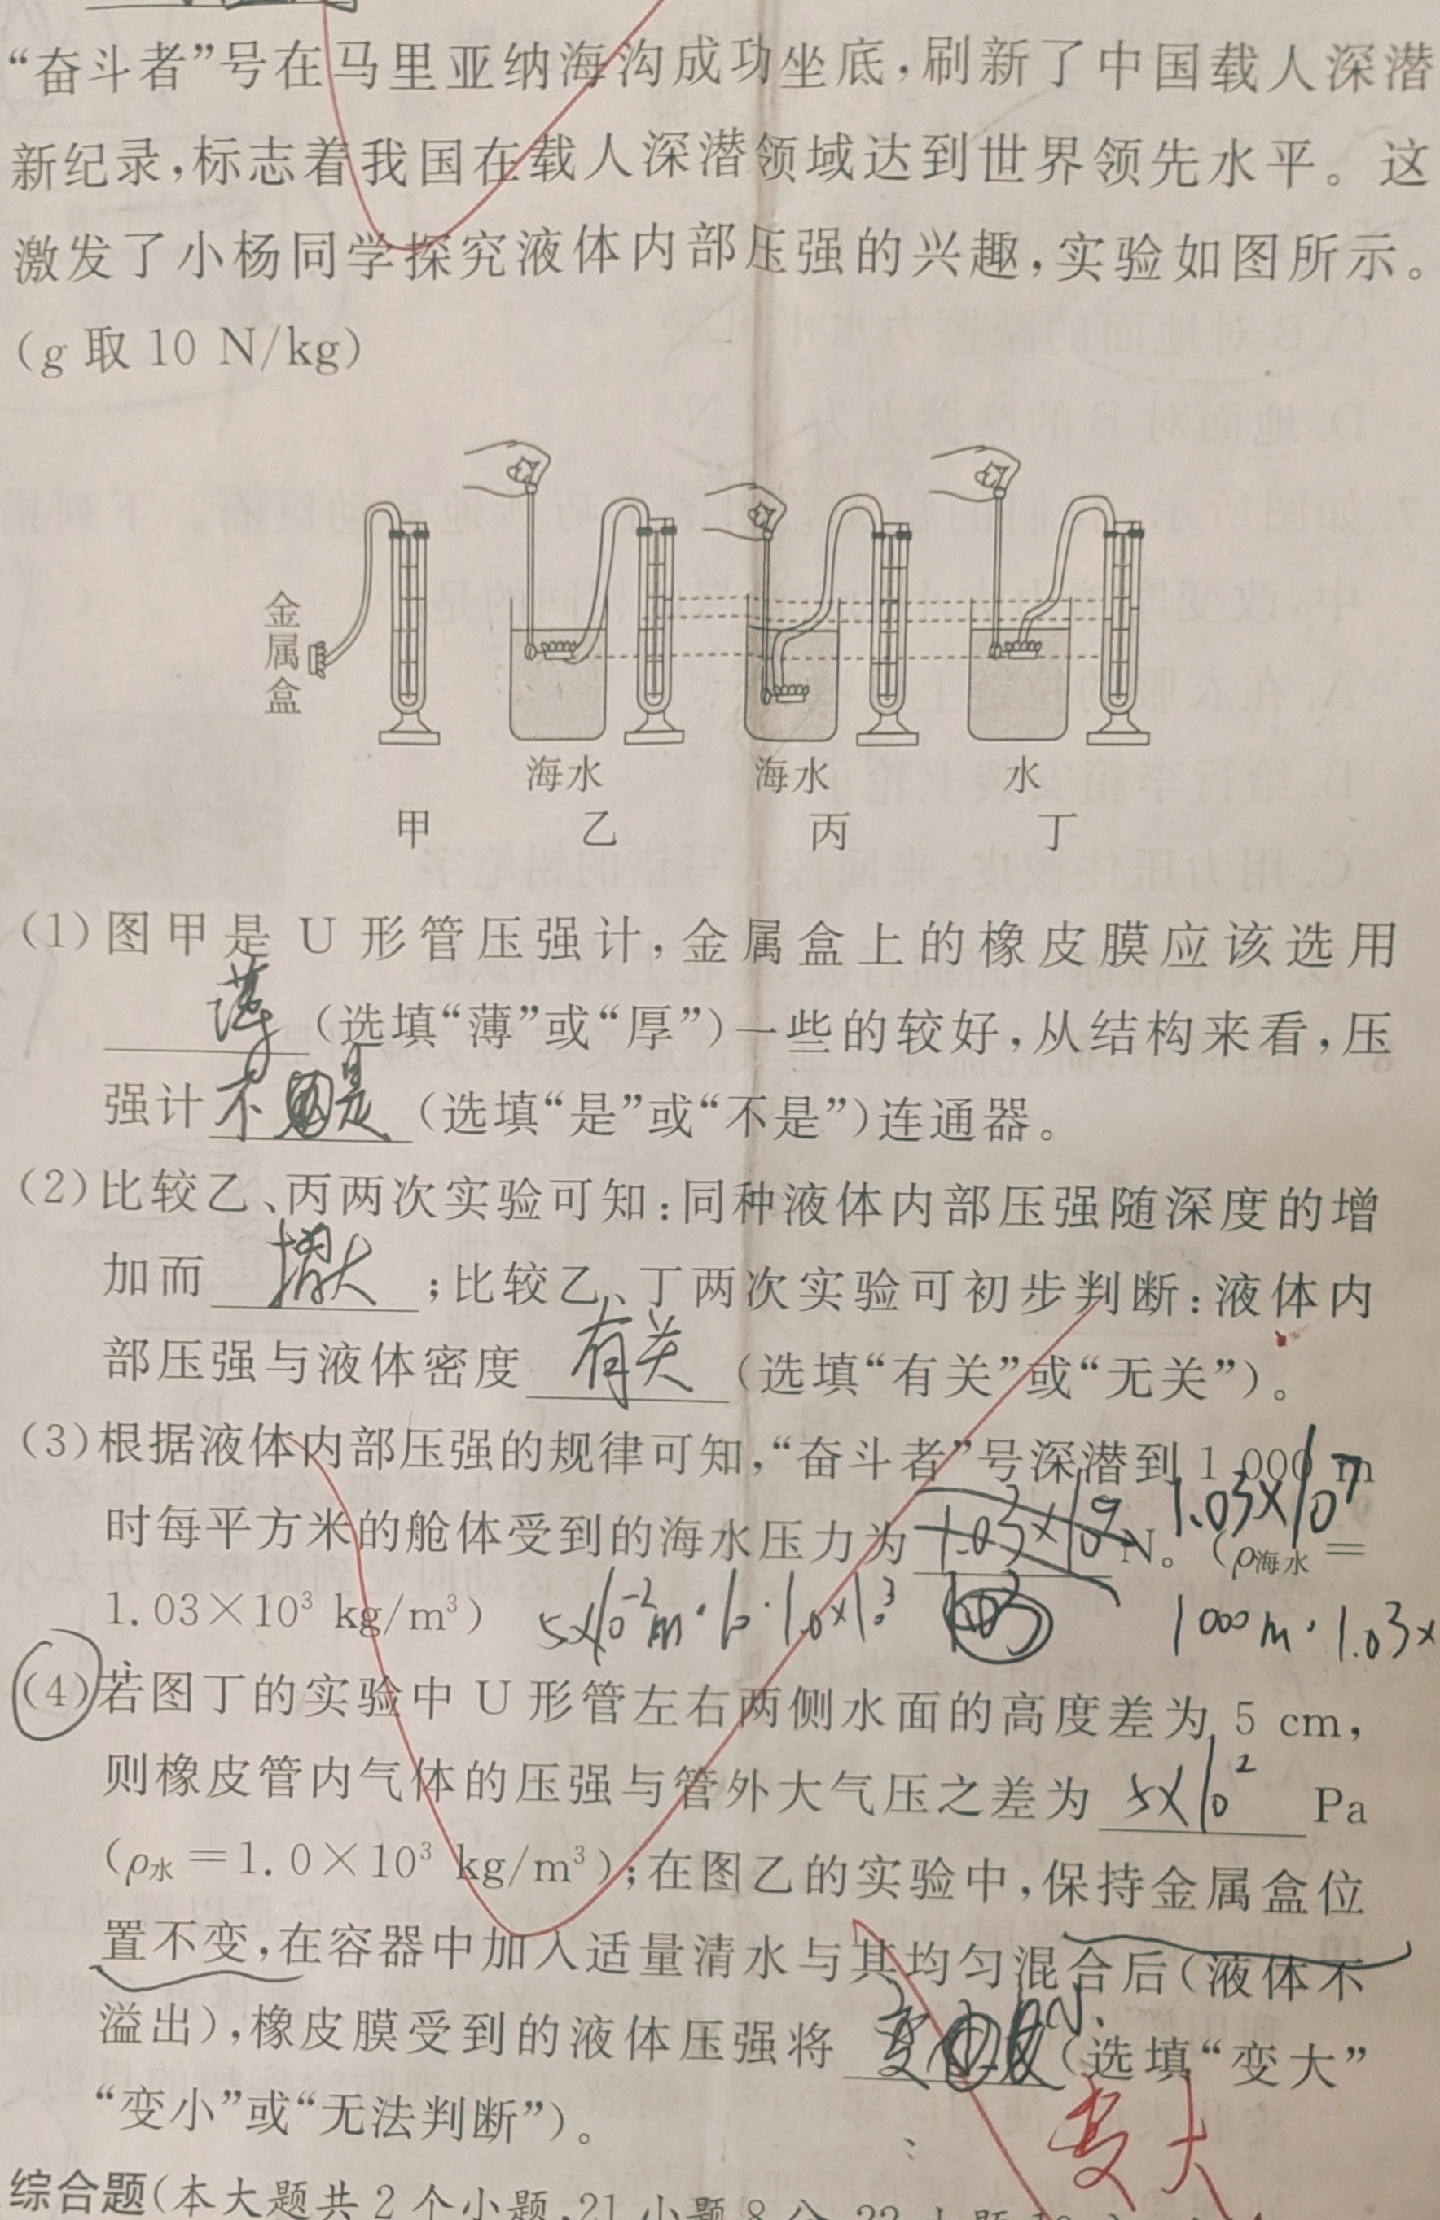 “奋斗者”号在马里亚纳海沟成功坐底,刷新了中国载人深潜
新纪录,标志着我国在载人深潜领域达到世界领先水平。这
激发了小杨同学探究液体内部压强的兴趣,实验如图所示。
(g 取 10 N/kg)
金属盒
海水 海水 水
甲 乙 丙 丁
(1)图甲是 U 形管压强计,金属盒上的橡皮膜应该选用
薄(选填“薄”或“厚”)一些的较好,从结构来看,压
强计不是(选填“是”或“不是”)连通器。
(2)比较乙、丙两次实验可知:同种液体内部压强随深度的增
加而 增大 ;比较乙、丁两次实验可初步判断:液体内
部压强与液体密度 有关 (选填“有关”或“无关”)。
(3)根据液体内部压强的规律可知,“奋斗者”号深潜到 1 000 m
时每平方米的舱体受到的海水压力为 N。 1.03×10⁷ (ρ海水=
1.03×10³ kg/m³) 5×10⁻²m·10·1.0×10³ 1000m·1.03×
(4)若图丁的实验中 U 形管左右两侧水面的高度差为 5 cm,
则橡皮管内气体的压强与管外大气压之差为 5×10² Pa
(ρ水=1.0×10³ kg/m³);在图乙的实验中,保持金属盒位
置不变,在容器中加入适量清水与其均匀混合后(液体不
溢出),橡皮膜受到的液体压强将 变小 (选填“变大”
“变小”或“无法判断”)。
变大
综合题(本大题共 2 个小题,21 小题 8 分,22 小题